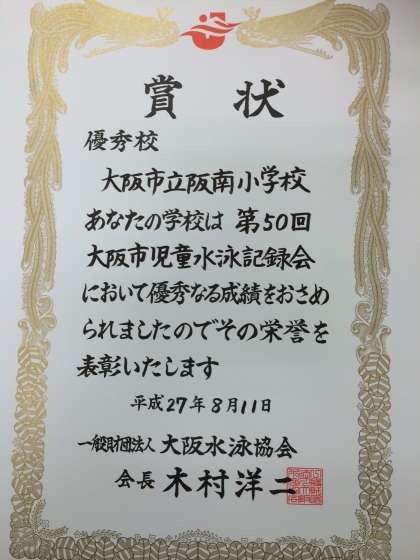 賞状
優秀校
大阪市立阪南小学校
あなたの学校は 第50回
大阪市児童水泳記録会
において優秀なる成績をおさめ
られましたのでその栄誉を
表彰いたします
平成27年8月11日
一般財団法人 大阪水泳協会
会長 木村洋二